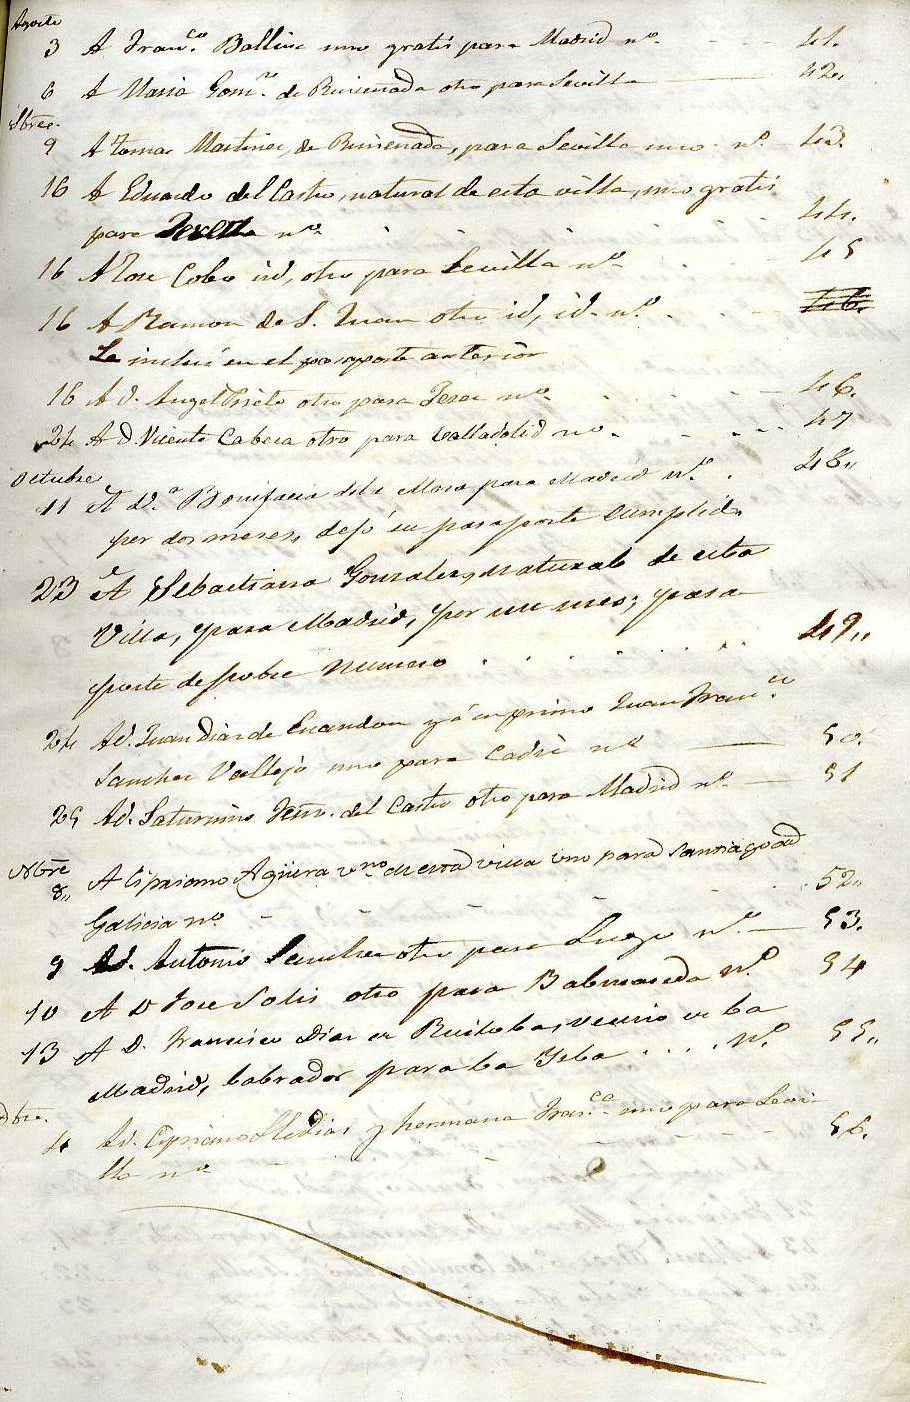 Agosto
3 A Franco. Balline uno gratis para Madrid no. 41.
6 A Maria Gomz. de Ruisenada otro para Sevilla 42,,
9 A Tomas Martinez, de Ruisenada, para Sevilla uno no. 43.
16 A Eduardo del Castro, natural de esta villa, uno gratis
para no. 44.
16 A Jose Cobo id, otro para Sevilla no. 45
16 A Ramon de S. Juan otro id, id. no. 46.
Se incluió en el pasaporte anterior
16 A d. Angel Prieto otro para Jerez no. 46.
24 A D. Vicente Cabeza otro para Valladolid no. 47
Octubre
11 A da. Bonifacia dela Mora para Madrid no. 48,,
por dos meses, dejó su pasaporte cumplido
23 A Sebastiana Gonzalez, natural de esta
Villa, para Madrid, por un mes; pasa-
porte de pobre numero 49,,
24 A d. Juan Diaz de Cuandon y á su primo Juan Franco.
Sanchez Vallejo uno para Cadiz no 50.
25 A d. Saturnino del Castro otro para Madrid no. 51
Nbre
8,, A Cipriano Agüera vno. de esta villa uno para Santiago de
Galicia no. 52,,
9 A d. Antonio Sanchez otro para Lugo no. 53.
10 A D Jose Solis otro para Balmaseda no. 54
13 A D. Francisco Diaz de Ruiloba, vecino de la
Madrid, labrador para la Isla . . . . no. 55,,
Dbre.
4 A d. Cipriano y hermana Franca. uno para Sevi-
lla no. 56.